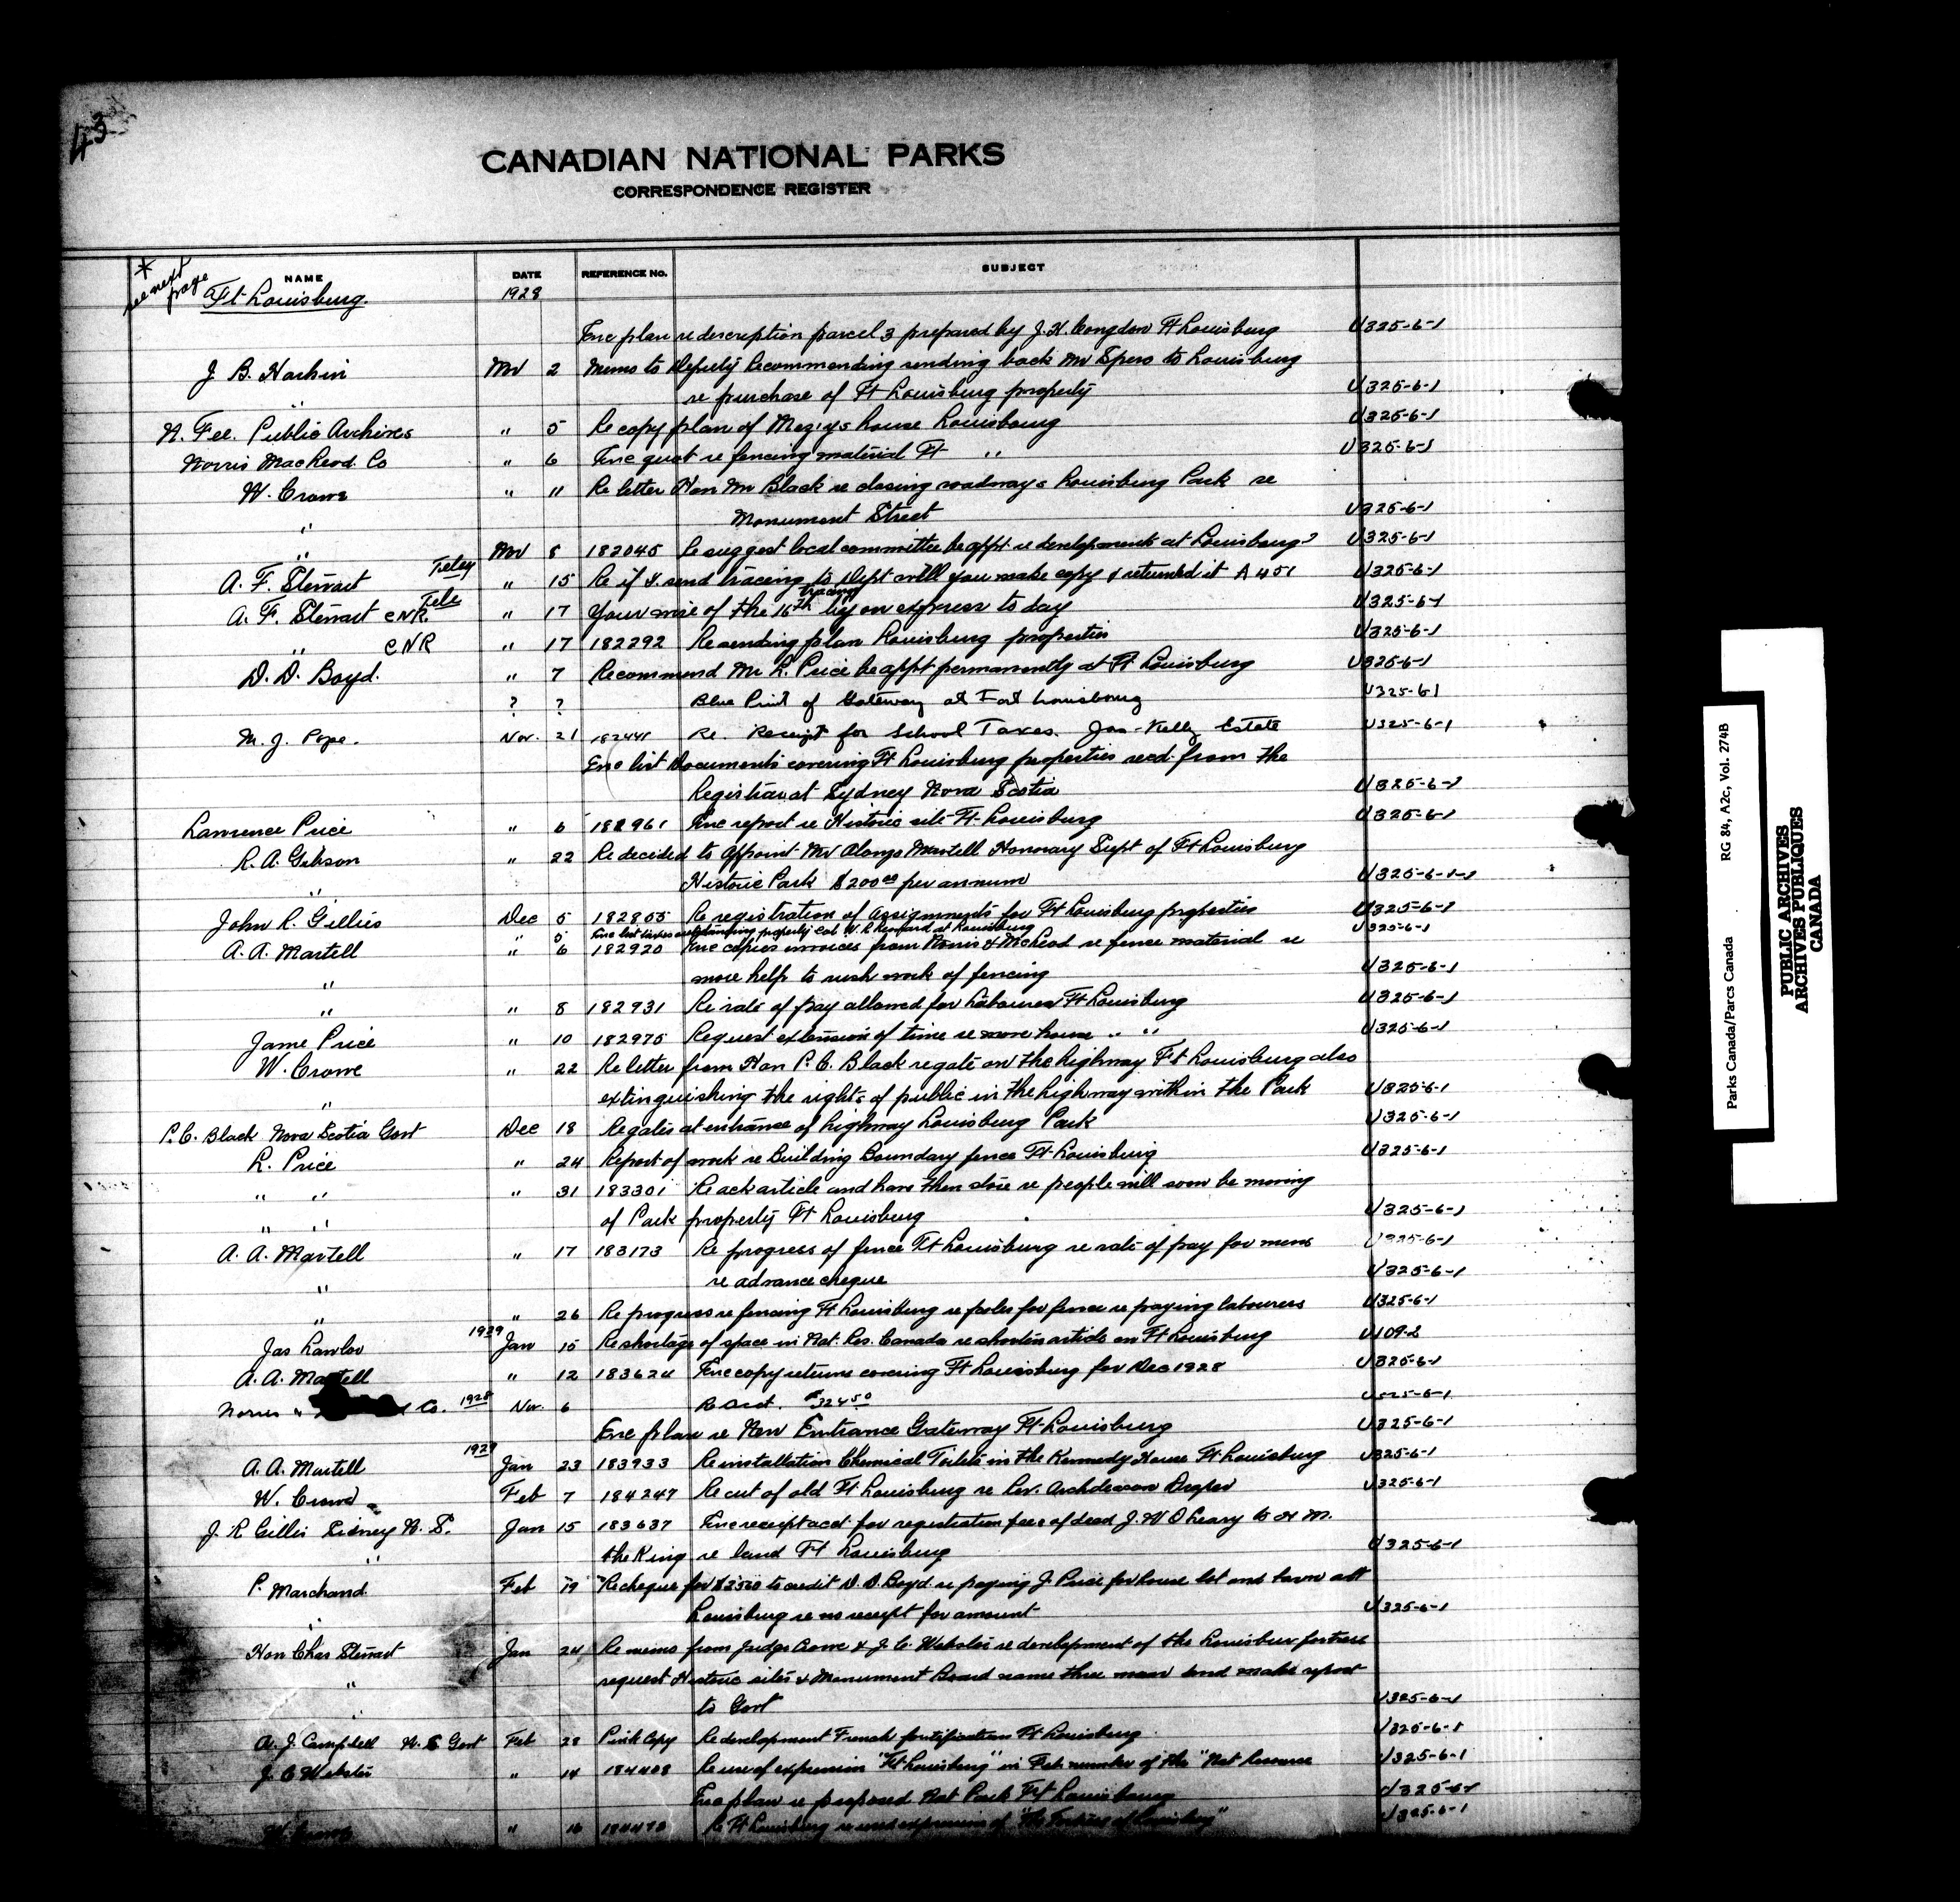 43
CANADIAN NATIONAL PARKS
CORRESPONDENCE REGISTER
* see next page
NAME DATE REFERENCE No. SUBJECT
Ft Louisburg. 1928
Enc plan re description parcel 3 prepared by J. H. Congdon Ft Louisburg U325-6-1
J. B. Harkin Nov 2 Memo to Deputy Recommending sending back Mr Spero to Louisburg
" re purchase of Ft Louisburg property U325-6-1
N. Fee. Public Archives " 5 Re copy plan of house Louisbourg U325-6-1
Norris MacLeod Co " 6 Enc quot re fencing material Ft " U325-6-1
W. Crowe " 11 Re letter Hon Mr Black re closing roadways Louisburg Park re
" Monument Street U325-6-1
" Nov 8 182045 Re suggest local committee be appt. re developments at Louisburg? U325-6-1
A. F. Stewart Teleg " 15 Re if I send tracing to Dept will you make copy & returned it A451 U325-6-1
A. F. Stewart CNR. Tele " 17 Your wire of the 16th tracing by on express to day U325-6-1
" CNR " 17 182292 Re sending plan Louisburg properties U325-6-1
D. D. Boyd. " 7 Recommend Mr L. Price be appt permanently at Ft Louisburg U325-6-1
? ? Blue Print of Gateway at Fort Louisbourg U325-6-1
M. J. Pope. Nov. 21 182441 Re. Receipt for School Taxes. Jas. Kelly Estate U325-6-1
Enc list Documents covering Ft Louisburg properties recd. from the
Registrar at Sydney Nova Scotia U325-6-1
Lawrence Price " 6 182961 Enc report re Historic site Ft Louisburg U325-6-1
R. A. Gibson " 22 Re decided to Appoint Mr Alonzo Martell Honorary Supt of Ft Louisburg
" Historic Park $200.00 per annum U325-6-1-1
John R. Gillies Dec 5 182855 Re registration of assignments for Ft Louisburg properties U325-6-1
" 5 Enc list property at Louisburg U325-6-1
A. A. Martell " 6 182920 Enc copies invoices from Norris & McLeod re fence material re
" more help to rush work of fencing U325-6-1
" " 8 182931 Re rate of pay allowed for Labourer Ft Louisburg U325-6-1
Jame Price " 10 182975 Request extension of time re house " " U325-6-1
W. Crowe " 22 Re letter from Hon P. C. Black re gate on the highway Ft Louisburg also
" extinguishing the rights of public in the highway within the Park U325-6-1
P. C. Black Nova Scotia Govt Dec 18 Re gates at entrance of highway Louisburg Park U325-6-1
L. Price " 24 Report of work re Building Boundary fence Ft Louisburg U325-6-1
" " " 31 183301 Re ack article and have then store re people will soon be moving
" " of Park property Ft Louisburg U325-6-1
A. A. Martell " 17 183173 Re progress of fence Ft Louisburg re rate of pay for mens U325-6-1
" re advance cheque U325-6-1
" " 26 Re progress re fencing Ft Louisburg re poles for fence re paying labourers U325-6-1
Jas Lawlor 1929 Jan 15 Re shortage of space in Nat. Res. Canada re shorten article on Ft Louisburg U109-2
A. A. Martell " 12 183624 Enc copy returns covering Ft Louisburg for Dec 1928 U325-6-1
Norris & Co. 1928 Nov. 6 Re Acct. $324.50 U325-6-1
Enc plan re New Entrance Gateway Ft Louisburg U325-6-1
A. A. Martell 1929 Jan 23 183933 Re installation Chemical Toilets in the Kennedy House Ft Louisburg U325-6-1
W. Crowe Feb 7 184247 Re cut of old Ft Louisburg re Rev. Archdeacon Draper U325-6-1
J. R Gillis Sidney N. S. Jan 15 183637 Enc receipt acct for registration fees of deed J. W O'Leary to H M.
" the King re land Ft Louisburg U325-6-1
P. Marchand. Feb 19 Re cheque for to credit D. D. Boyd re paying J. Price for house lot and barn att
" Louisburg re no receipt for amount U325-6-1
Hon Chas Stewart Jan 24 Re memo from Judge Crowe & J. C. Webster re development of the Louisbur fortress
" request Historic sites & Monument Board name three mear and make report
" to Govt U325-6-1
A. J. Campbell N. S Govt Feb 28 Pink Copy Re development French fortification Ft Louisburg U325-6-1
J. C Webster " 14 184408 Re use of expression "Ft Louisburg" in Feb number of the "Nat Resource U325-6-1
Enc plan re proposed Nat Park Ft Louisburg U325-6-1
W. Crowe " 16 184478 Re Ft Louisburg re used expression of "The Fortress of Louisburg" U325-6-1
Parks Canada/Parcs Canada RG 84, A2c, Vol. 274B
PUBLIC ARCHIVES
ARCHIVES PUBLIQUES
CANADA